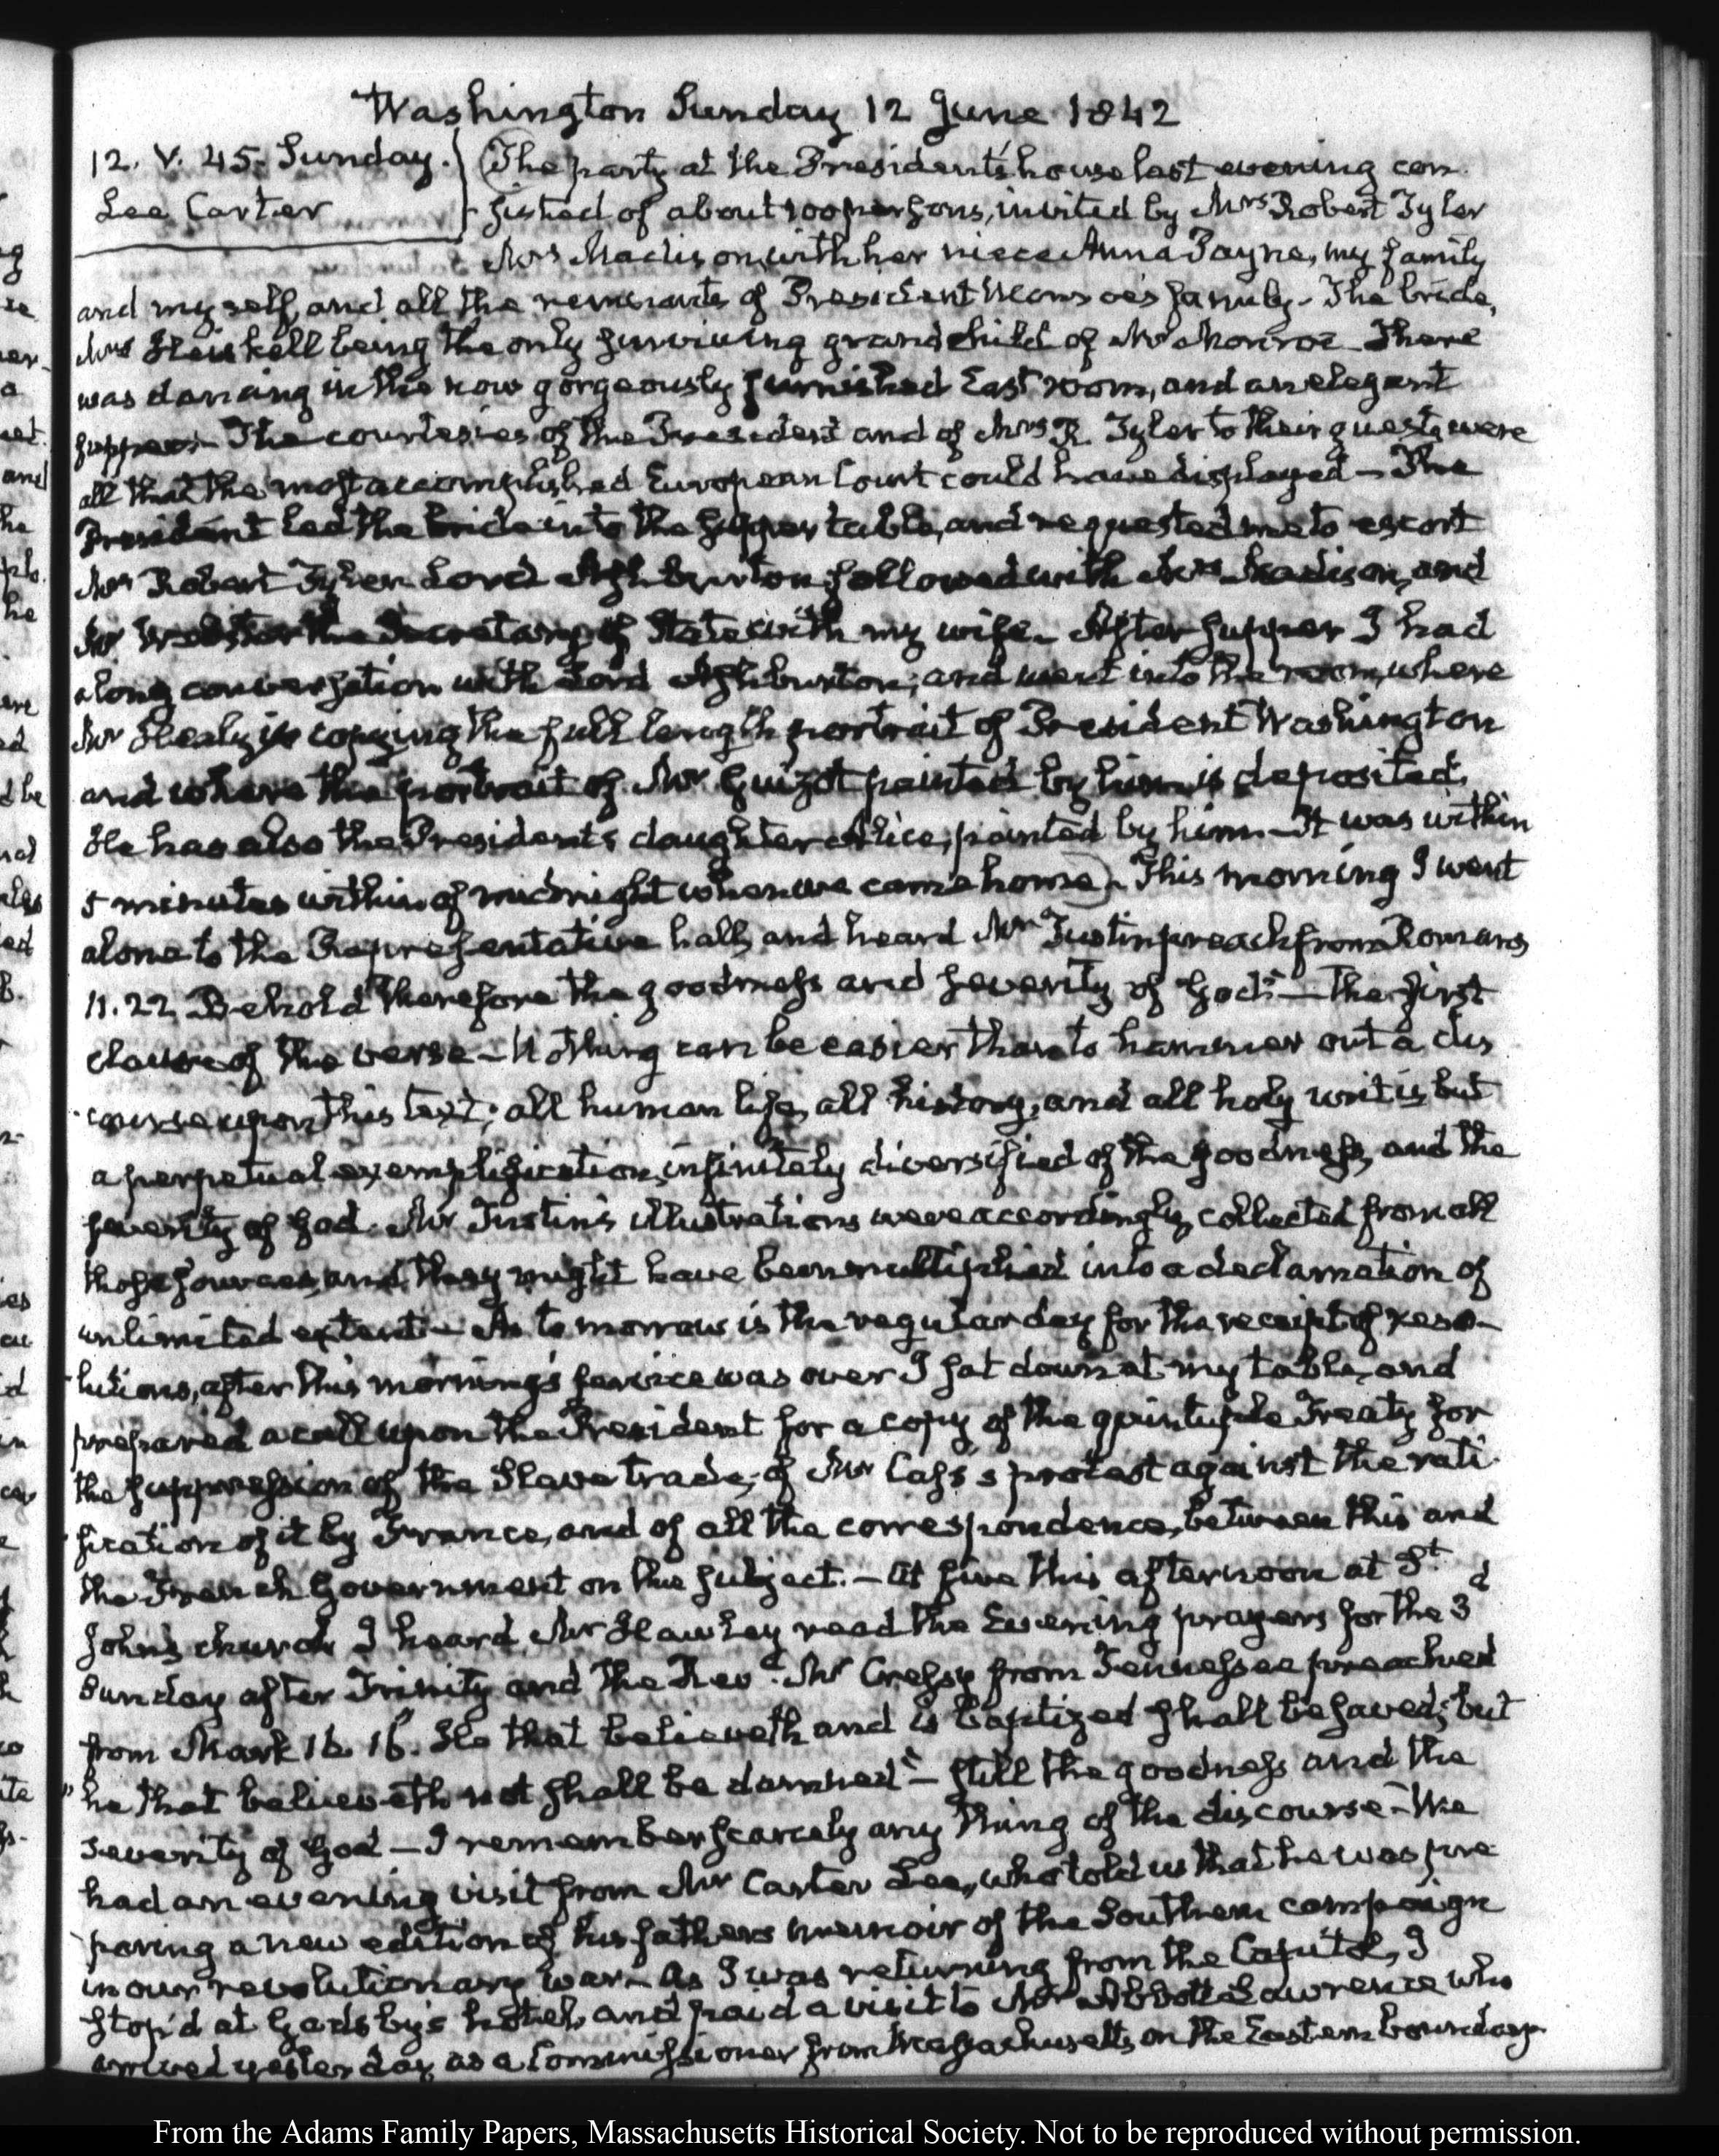 Washington Sunday 12 June 1842
12. V. 45. Sunday.
Lee Carter
The party at the President's house last evening con-
sisted of about 100 persons, invited by Mrs Robert Tyler
Mrs Madison, with her niece Anna Payne, my family
and myself, and all the remnants of President Monroe's family. The bride,
Mrs Heiskell being the only surviving grandchild of Mr Monroe. There
was dancing in the now gorgeously furnished East room, and an elegant
supper. The courtesies of the President and of Mrs R. Tyler to their guests were
all that the most accomplished European Court could have displayed — The
President led the bride into the supper table, and requested me to escort
Mrs Robert Tyler. Lord Ashburton followed with Mrs Madison, and
Mr Webster the Secretary of State with my wife. After supper I had
a long conversation with Lord Ashburton, and went into the room, where
Mr Healy is copying the full length portrait of President Washington
and where the portrait of Mr Guizot painted by him is deposited.
He has also the President's daughter Alice, painted by him — It was within
5 minutes within of midnight when we came home). This morning I went
alone to the Representative hall, and heard Mr Tustin preach from Romans
11.22 Behold therefore the goodness and severity of God" — the first
clause of the verse — Nothing can be easier than to hammer out a dis
course upon this text; all human life, all history, and all holy writ is but
a perpetual exemplification, infinitely diversified of the goodness, and the
severity of God. Mr Tustin's illustrations were accordingly collected from all
those sources, and they might have been multiplied into a declamation of
unlimited extent — As to morrow is the regular day for the receipt of reso-
lutions, after this morning's service was over I sat down at my table, and
prepared a call upon the President for a copy of the quintuple Treaty for
the suppression of the Slave trade; of Mr Cass's protest against the rati-
fication of it by France, and of all the correspondence, between this and
the French Government on the subject. — At five this afternoon at St
John's church I heard Mr Hawley read the Evening prayers for the 3d
Sunday after Trinity and the Revd Mr Cressy from Tennessee preached
from Mark 16. 16. He that believeth and is baptized shall be saved; but
"he that believeth not shall be damned" — still the goodness and the
severity of God — I remember scarcely any thing of the discourse — We
had an evening visit from Mr Carter Lee, who told us that he was pre
paring a new edition of his father's memoir of the Southern campaign
in our revolutionary war — As I was returning from the Capitol, I
stop'd at Gadsby's hotel, and paid a visit to Mr Abbott Lawrence who
arrived yesterday as a Commissioner from Massachusetts on the Eastern boundary
From the Adams Family Papers, Massachusetts Historical Society. Not to be reproduced without permission.